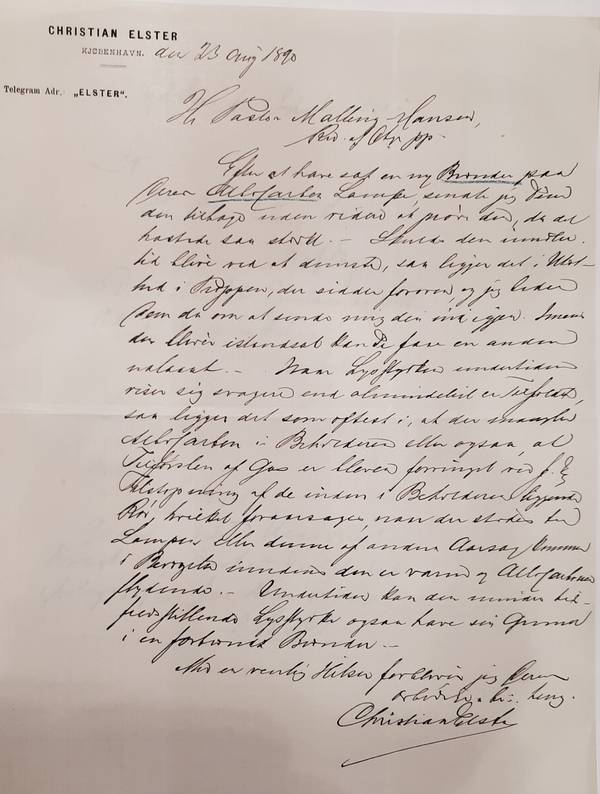 CHRISTIAN ELSTER
KJØBENHAVN. den 23 Aug 1890
Telegram Adr. „ELSTER“.
Hr Pastor Malling-Hansen,
Rid. af Dbg pp
Efter at have sat en ny Brænder paa
Deres Albocarbon Lampe, sendte jeg Dem
den tilbage uden videre at prøve den, da det
hastede saa stærkt. – Skulde den imidler
tid blive ved at dunste, saa ligger det i
i Proppen, der sidder foroven og jeg beder
Dem da om at sende mig den ind igjen. Imens
den bliver istandsat kan De faae en anden
– Naar Lysstyrken undertiden
viser sig svagere end almindeligt er Tilfældet,
saa ligger det som oftest i, at der mangler
Albocarbon i Beholderen eller ogsaa, at
Tilførslen af Gas er bleven forringet ved f. Ex
Tilstopning af de inden i Beholderen liggende
Rør, hvilket foraarsages naar der stødes til
Lampen eller denne af anden Aarsag kommer
i Bevægelse imedens den er varm og Albocarbonen
flydende. – Undertiden kan den mindre til-
fredsstillende Lysstyrke ogsaa have sin Grund
i en forbrændt Brænder –
Med en venlig Hilsen forbliver jeg Deres
Christian Elster